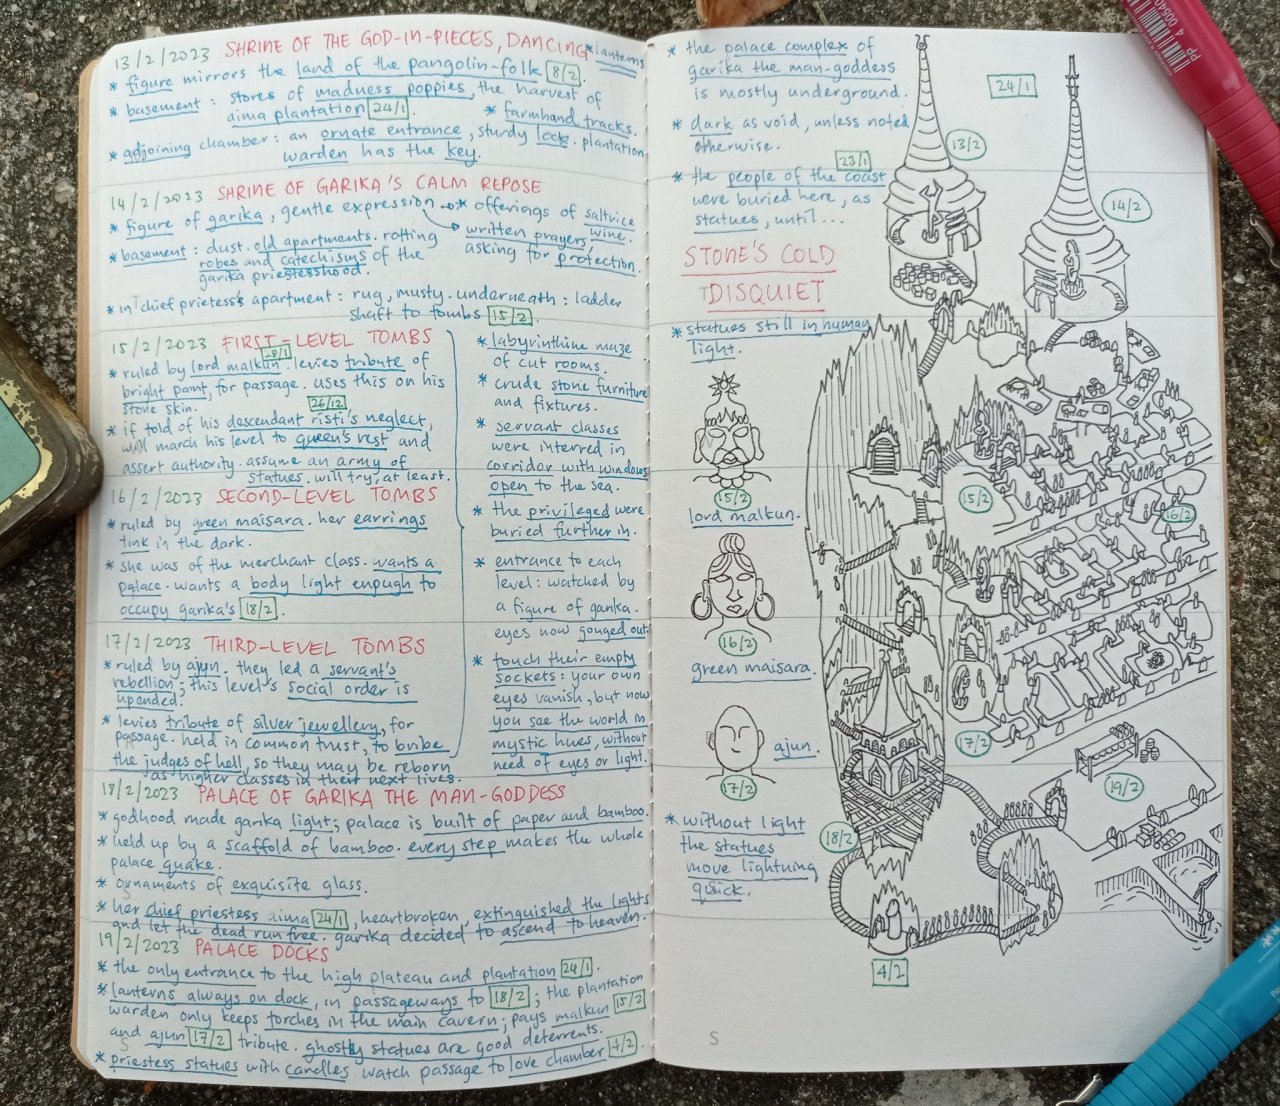 13/2/2023 SHRINE OF THE GOD-IN-PIECES, DANCING * lanterns
* figure mirrors the land of the pangolin-folk 8/2.
* basement: stores of madness poppies, the harvest of
aima plantation 24/1. * farmhand tracks.
* adjoining chamber: an ornate entrance, sturdy lock. plantation
warden has the key.
14/2/2023 SHRINE OF GARIKA'S CALM REPOSE
* figure of garika, gentle expression * offerings of saltrice
wine.
written prayers,
asking for protection.
* basement: dust. old apartments. rotting
robes and catechisms of the
garika priestesshood.
* in chief prietess's apartment: rug, musty. underneath: ladder
shaft to tombs 15/2.
15/2/2023 FIRST-LEVEL TOMBS
* ruled by lord malkun 28/1. levies tribute of
bright paint, for passage. uses this on his
stone skin.
26/12
* if told of his descendant risti's neglect,
will march his level to queen's rest and
assert authority. assume an army of
statues. will try, at least.
16/2/2023 SECOND-LEVEL TOMBS
* ruled by green maisara. her earrings
tink in the dark.
* she was of the merchant class. wants a
palace. wants a body light enough to
occupy garika's 18/2.
17/2/2023 THIRD-LEVEL TOMBS
* ruled by ajun. they led a servant's
rebellion; this level's social order is
upended.
* levies tribute of silver jewellery, for
passage. held in common trust, to bribe
the judges of hell, so they may be reborn
as higher classes in their next lives.
* labyrinthine maze
of cut rooms.
* crude stone furniture
and fixtures.
* servant classes
were interred in
corridor with windows
open to the sea.
* the privileged were
buried further in.
* entrance to each
level: watched by
a figure of garika.
eyes now gouged out.
* touch their empty
sockets: your own
eyes vanish, but now
you see the world in
mystic hues, without
need of eyes or light.
18/2/2023 PALACE OF GARIKA THE MAN-GODDESS
* godhood made garika light; palace is built of paper and bamboo.
* held up by a scaffold of bamboo. every step makes the whole
palace quake.
* ornaments of exquisite glass.
* her chief priestess aima 24/1, heartbroken, extinguished the lights
and let the dead run free. garika decided to ascend to heaven.
19/2/2023 PALACE DOCKS
* the only entrance to the high plateau and plantation 24/1.
* lanterns always on dock, in passageways to 18/2; the plantation
warden only keeps torches in the main cavern; pays malkun 15/2
and ajun 17/2 tribute. ghostly statues are good deterrents.
* priestess statues with candles watch passage to love chamber 4/2.
S
* the palace complex of
garika the man-goddess
is mostly underground.
* dark as void, unless noted
otherwise.
23/1
* the people of the coast
were buried here, as
statues, until...
STONE'S COLD
DISQUIET
* statues still in human
light.
15/2
lord malkun.
16/2
green maisara.
ajun.
17/2
* without light
the statues
move lightning
quick.
24/1
13/2
14/2
15/2
16/2
17/2
19/2
18/2
4/2
S